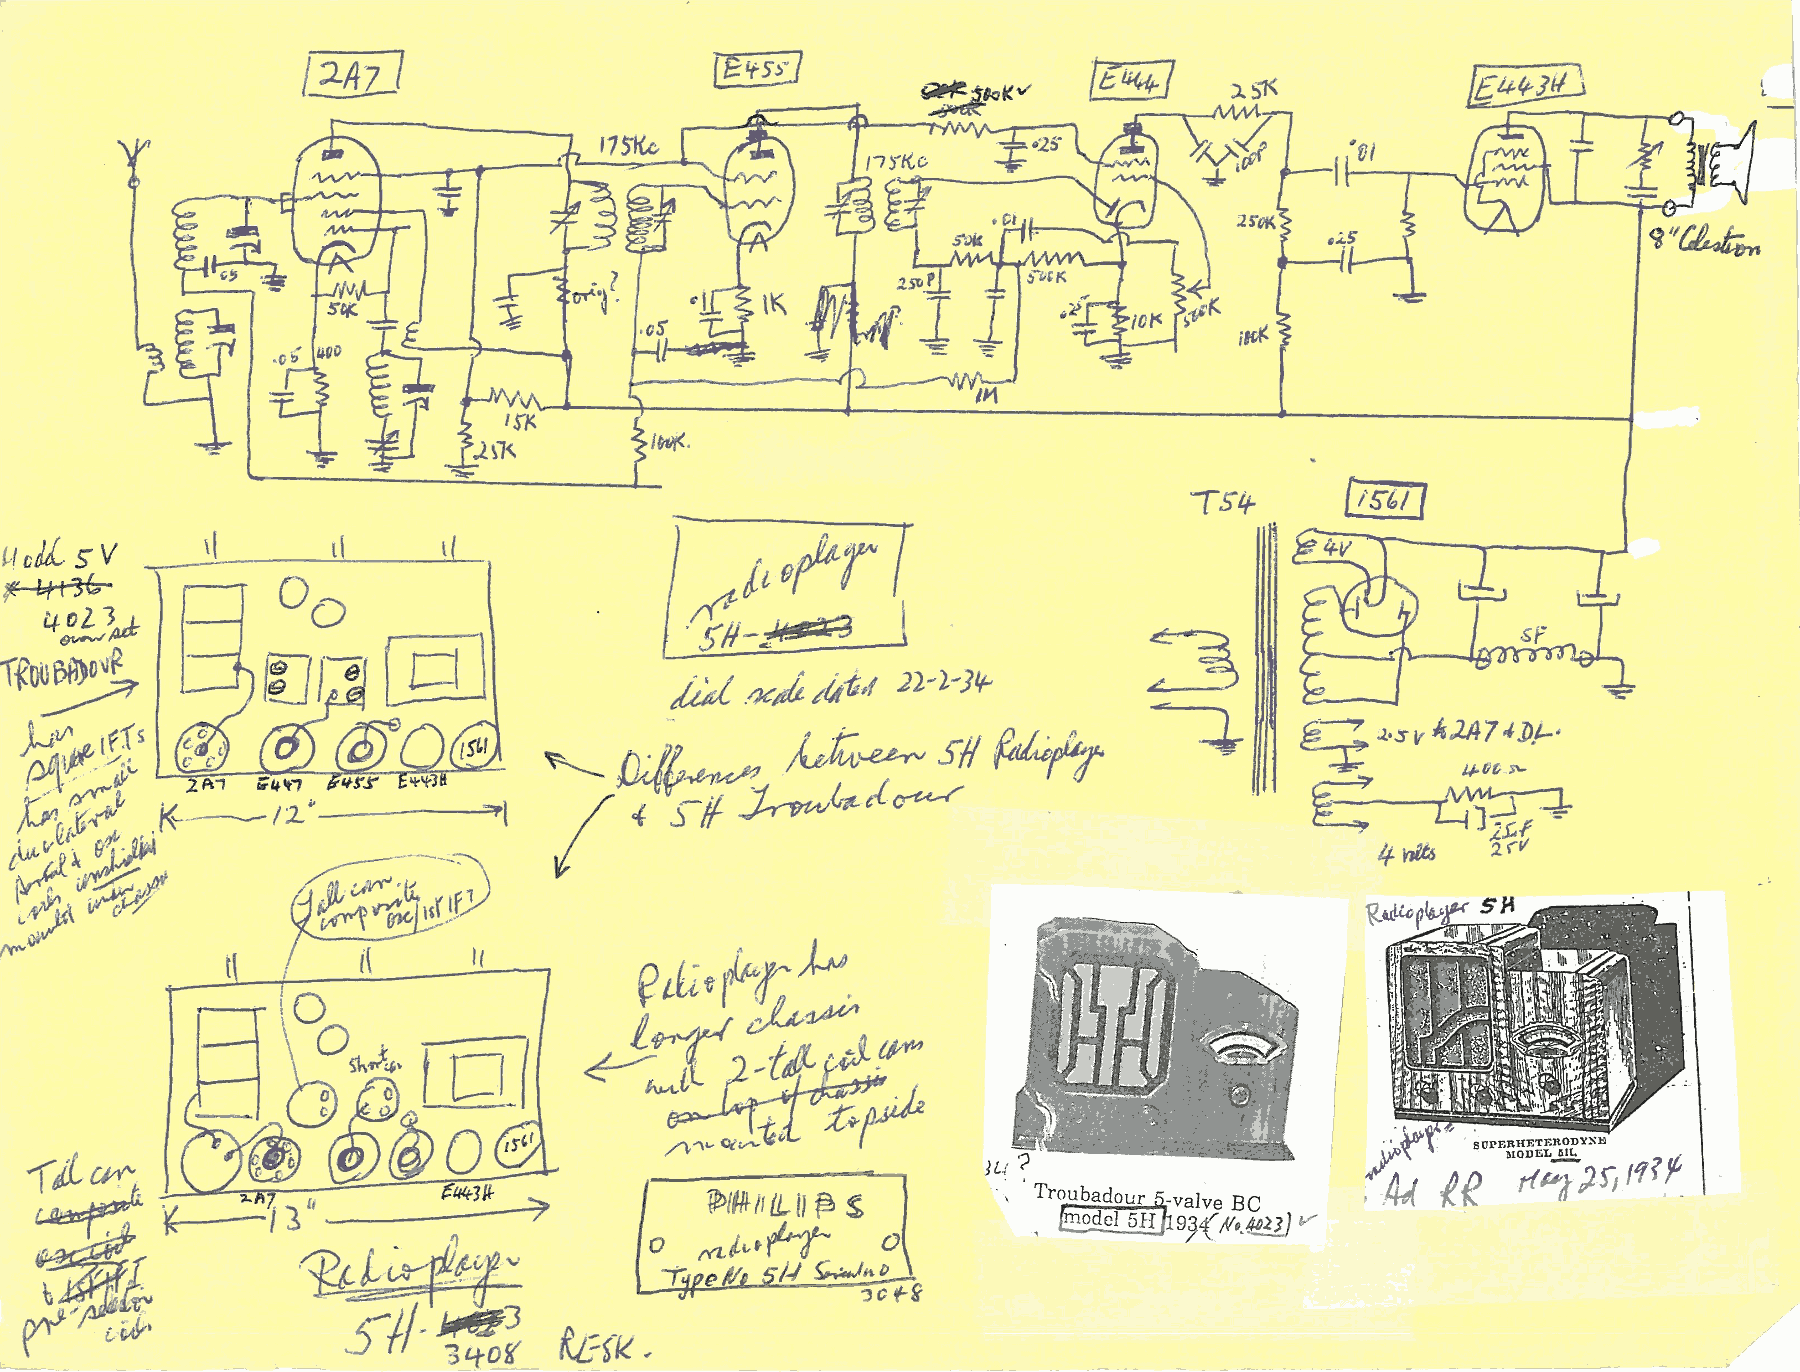 2A7
E455
E444
E443H
500K
25K
175Kc
.025
175Kc
100P
.01
.05
50K
orig?
.01
1K
.01
50K
250P
500K
250K
.025
8" Celestion
.05
400
.05
.025
10K
500K
100K
15K
25K
1M
100K.
T54
1561
4V
SF
2.5V to 2A7 & DL.
400Ω
25V
4 volts
Modd 5V
4136
4023
own set
TROUBADOUR
has
square IFTs
has small
aerial & osc
under
chassis
1561
2A7
E447
E455
E443H
12"
radioplayer
5H-4023
dial scale dated 22-2-34
Differences between 5H Radioplayer
& 5H Troubadour
Tall can
composite
osc/1st IFT
Radioplayer has
longer chassis
with 2-tall coil cans
on top of chassis
mounted topside
Short can
1561
2A7
E443H
13"
Tall can
composite
osc coil
& 1st IFT
pre-selector
coils
Radioplayer
5H-4023
3408
RL-SK.
PHILIPS
radioplayer
Type No 5H Serial no
3048
34?
Troubadour 5-valve BC
model 5H 1934 (No. 4023)
Radioplayer 5H
radioplayer
SUPERHETERODYNE
MODEL 5H.
Ad RR May 25, 1934